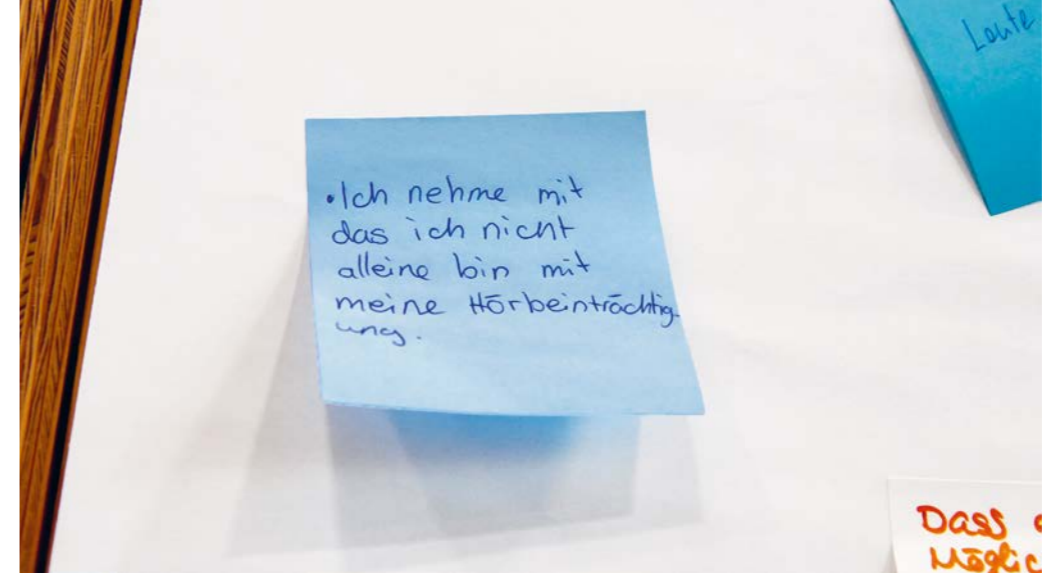 Leute
•Ich nehme mit
das ich nicht
alleine bin mit
meine Hörbeinträchtig-
ung.
Dass
Möglic